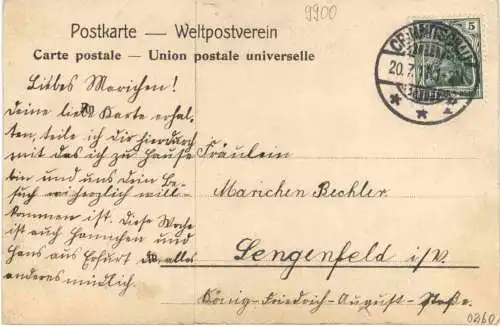 9900
Postkarte — Weltpostverein
Carte postale — Union postale universelle
5
20.7.
Liebes Marichen!
Deine liebe Karte erhal-
ten, teile ich dir hierdurch
mit das ich zu Hause
bin und uns dein Be-
such herzlich will-
kommen ist. Diese Woche
ist auch Hannchen und
Hans aus Erfurt da, alles
anderes mündlich.
Fräulein
Marichen Bechler.
Lengenfeld i/V.
König-Friedrich-August-Straße.
0260